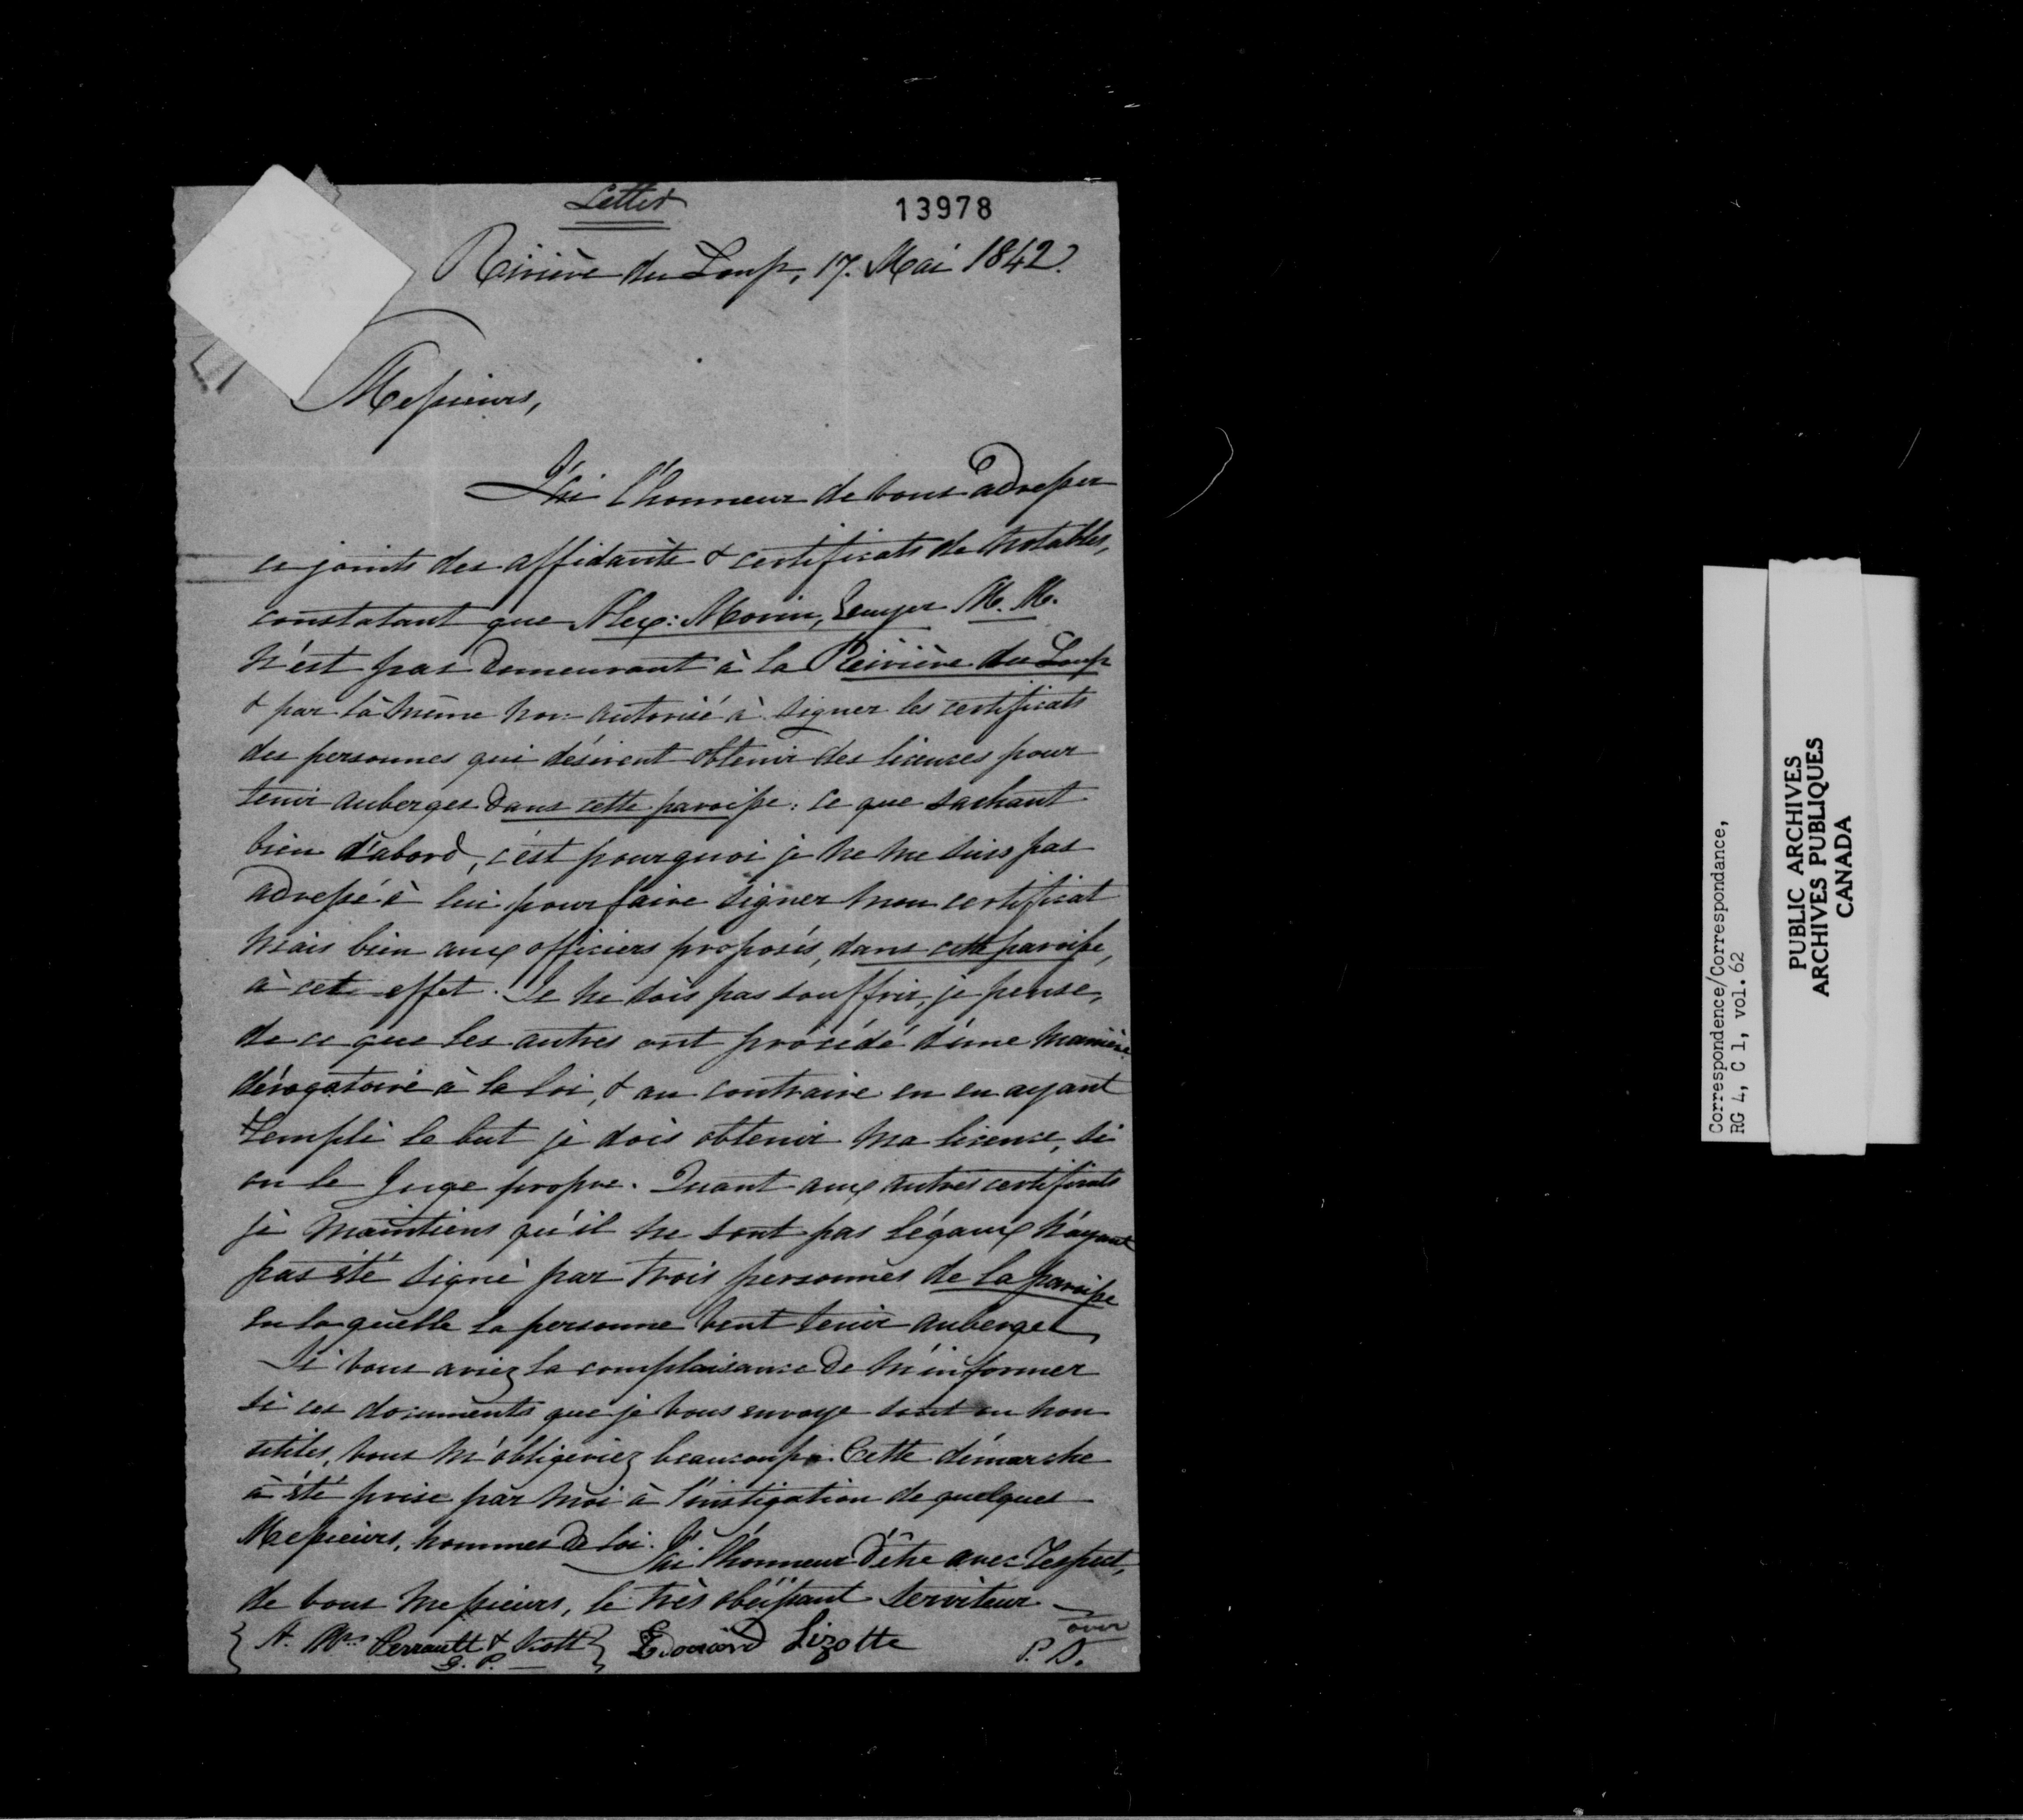 Letter
13978
Rivière du Loup, 17. Mai 1842.
Messieurs,
J'ai l'honneur de vous adresser
ci joints des affidavits & certificats de Notables,
constatant que Alex: Morin, Ecuyer M. M.
n'est pas demeurant à la Rivière du Loup
& par là même non autorisé à signer les certificats
des personnes qui désirent obtenir des licenses pour
tenir auberges dans cette paroisse: ce que sachant
bien d'abord, c'est pourquoi je ne me suis pas
adressé à lui pour faire signer mon certificat
mais bien aux officiers proposés, dans cette paroisse,
à cet effet. Je ne dois pas souffrir, je pense,
de ce que les autres ont procédé d'une manière
dérogatoire à la loi, & au contraire en en ayant
rempli le but je dois obtenir ma license, si
on le juge propre. Quant aux autres certificats
je maintiens qu'il ne sont pas légaux n'ayant
pas été signé par trois personnes de la paroisse
en laquelle la personne veut tenir auberge
Si vous aviez la complaisance de m'informer
si ces documents que je vous envoye sont ou non
utiles, vous m'obligeriez beaucoup. Cette démarche
a été prise par moi à l'instigation de quelques
Messieurs, hommes de loi. J'ai l'honneur d'être avec respect,
de vous messieurs, le très obéissant serviteur
over
A. Mrs Perrault & Scott Edouard Lizotte P.S.
G. P.
Correspondence/Correspondance,
RG 4, C 1, vol. 62
PUBLIC ARCHIVES
ARCHIVES PUBLIQUES
CANADA